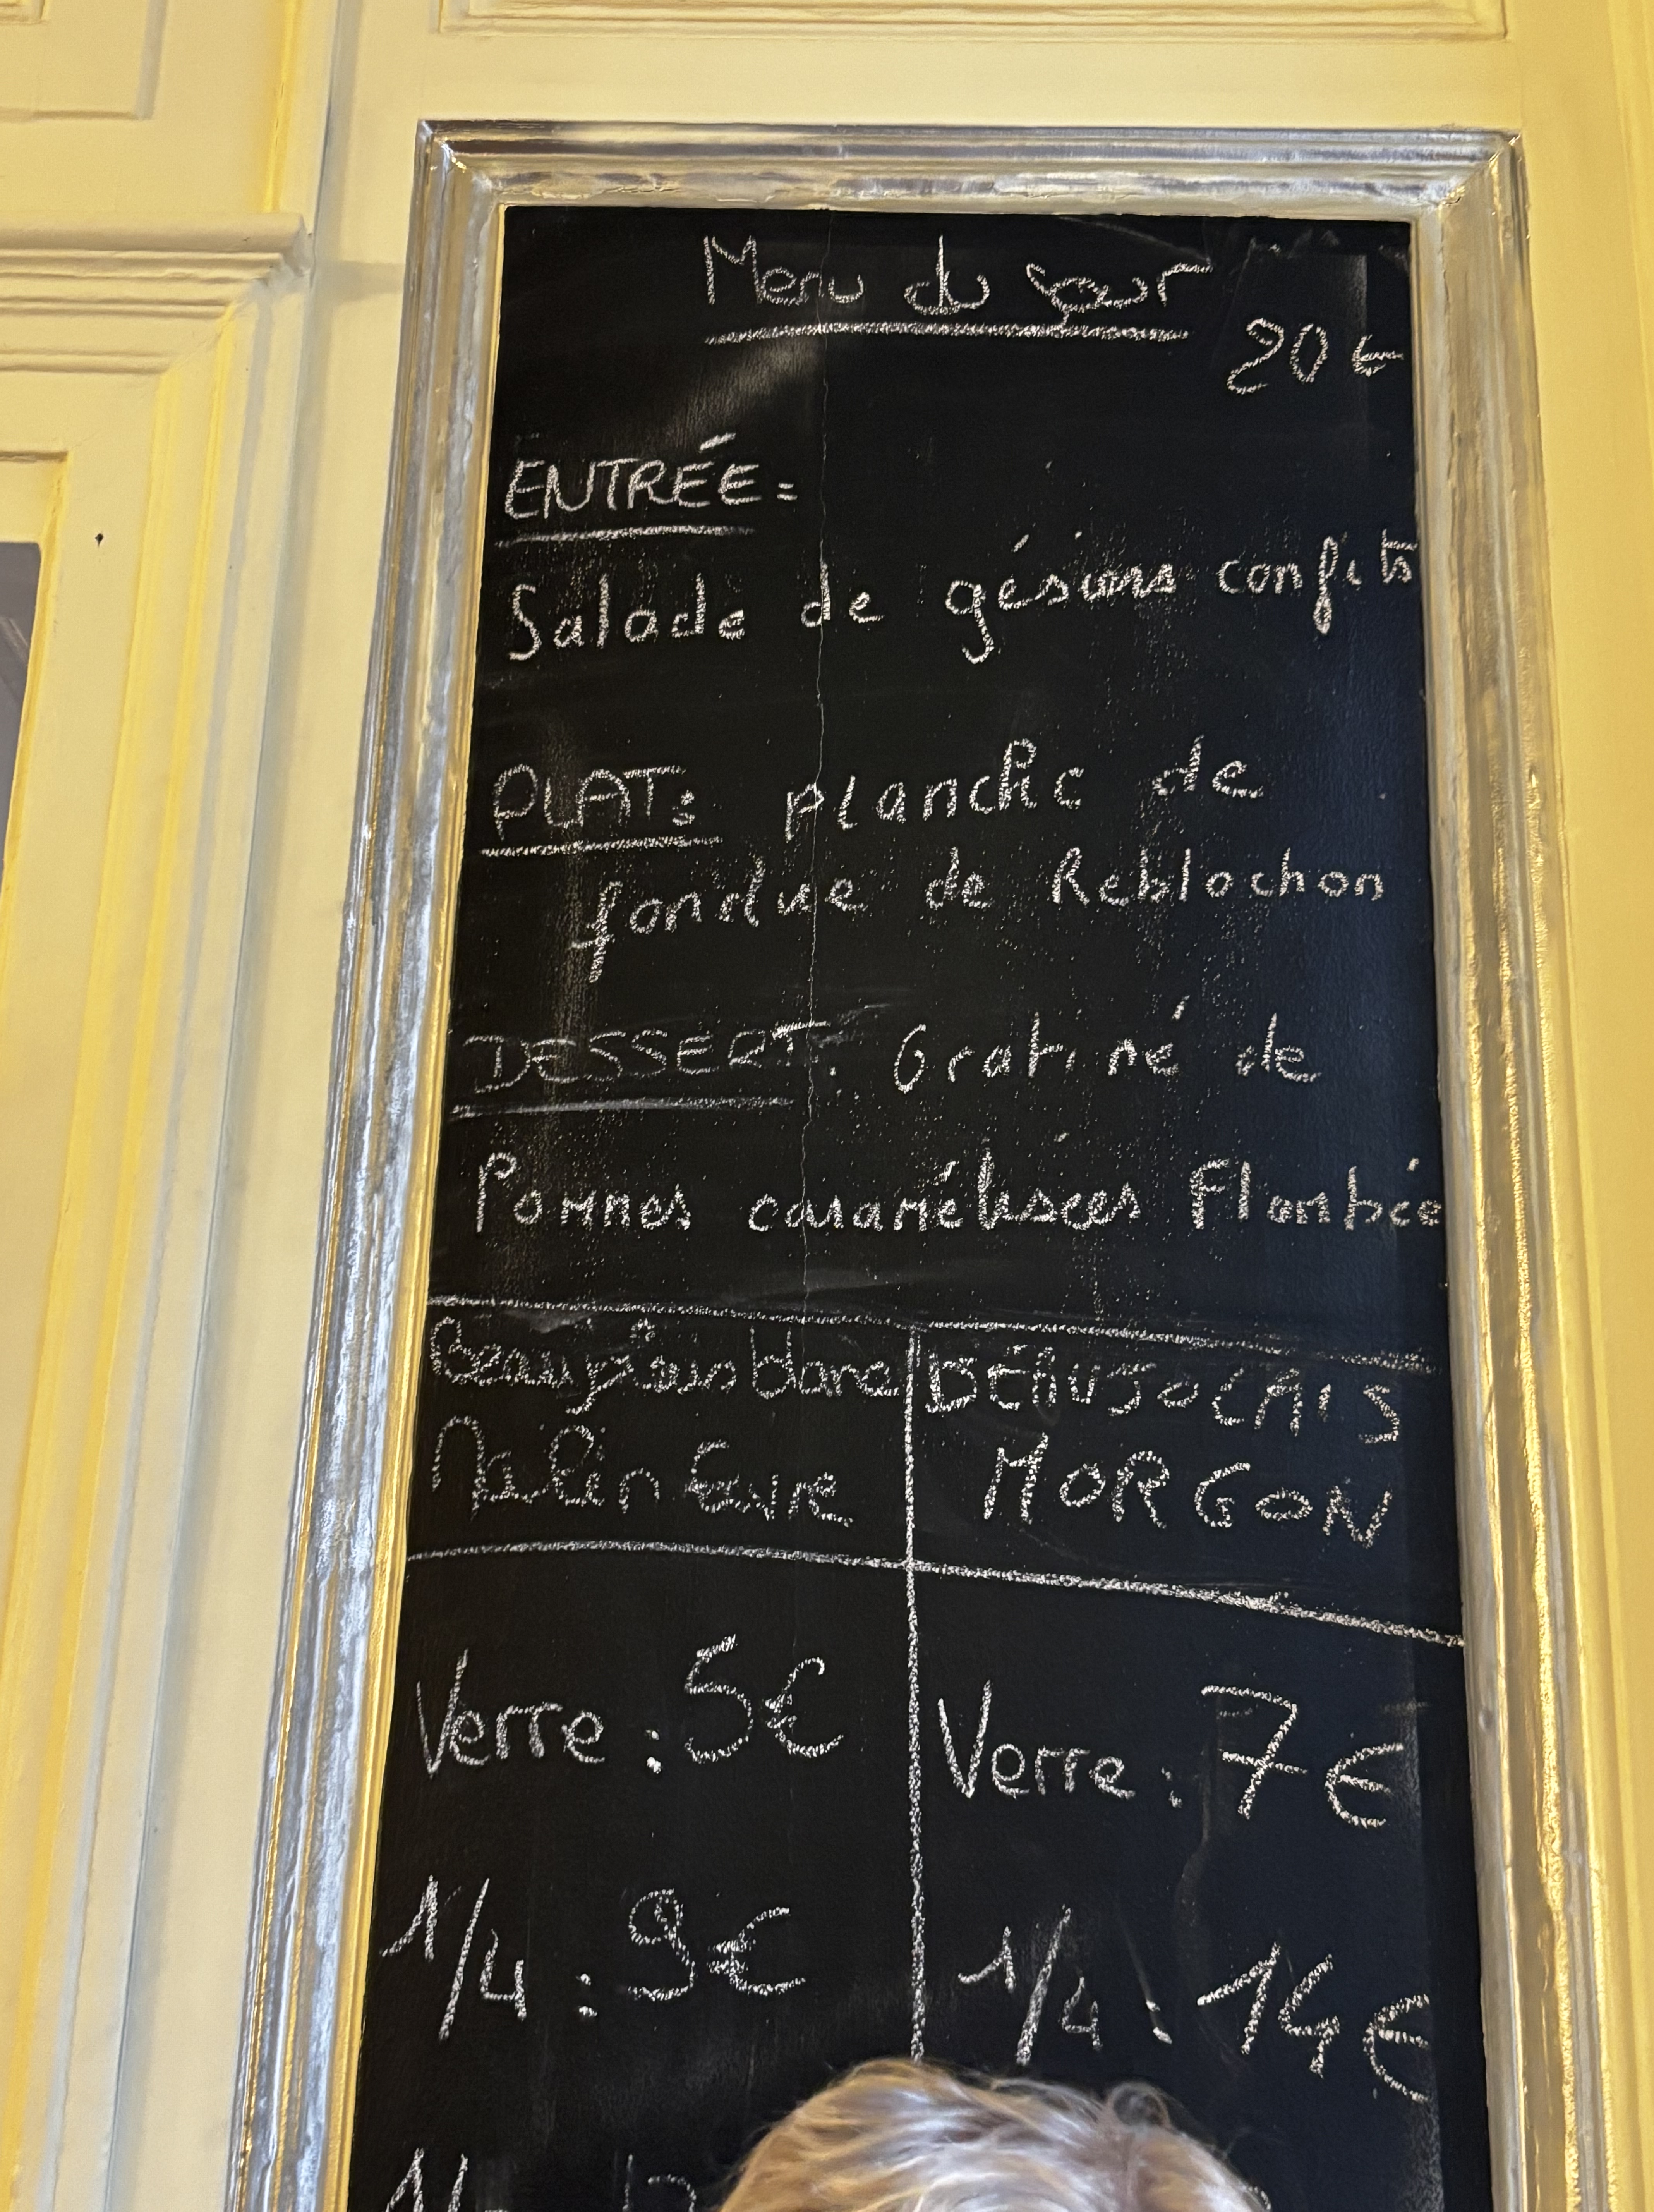 Menu du jour
20 €
ENTRÉE:
Salade de gésiers confits
PLAT: planche de
fondue de Reblochon
DESSERT: Gratiné de
Pommes caramélisées Flambée
blanc BEAUJOLAIS
MORGON
Verre : 5€ Verre : 7€
1/4 : 9€ 1/4 : 14€